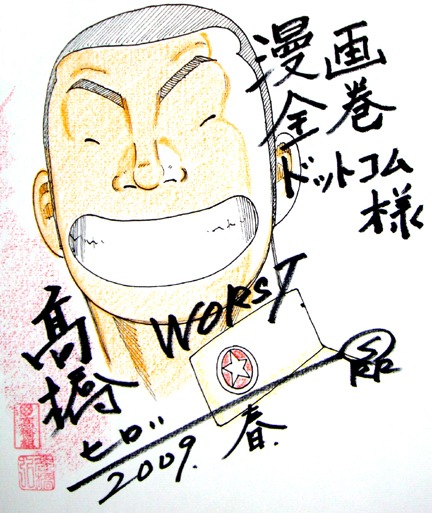 漫画
全巻
ドットコム
様
WORST
髙橋
ヒロシ
2009.春.